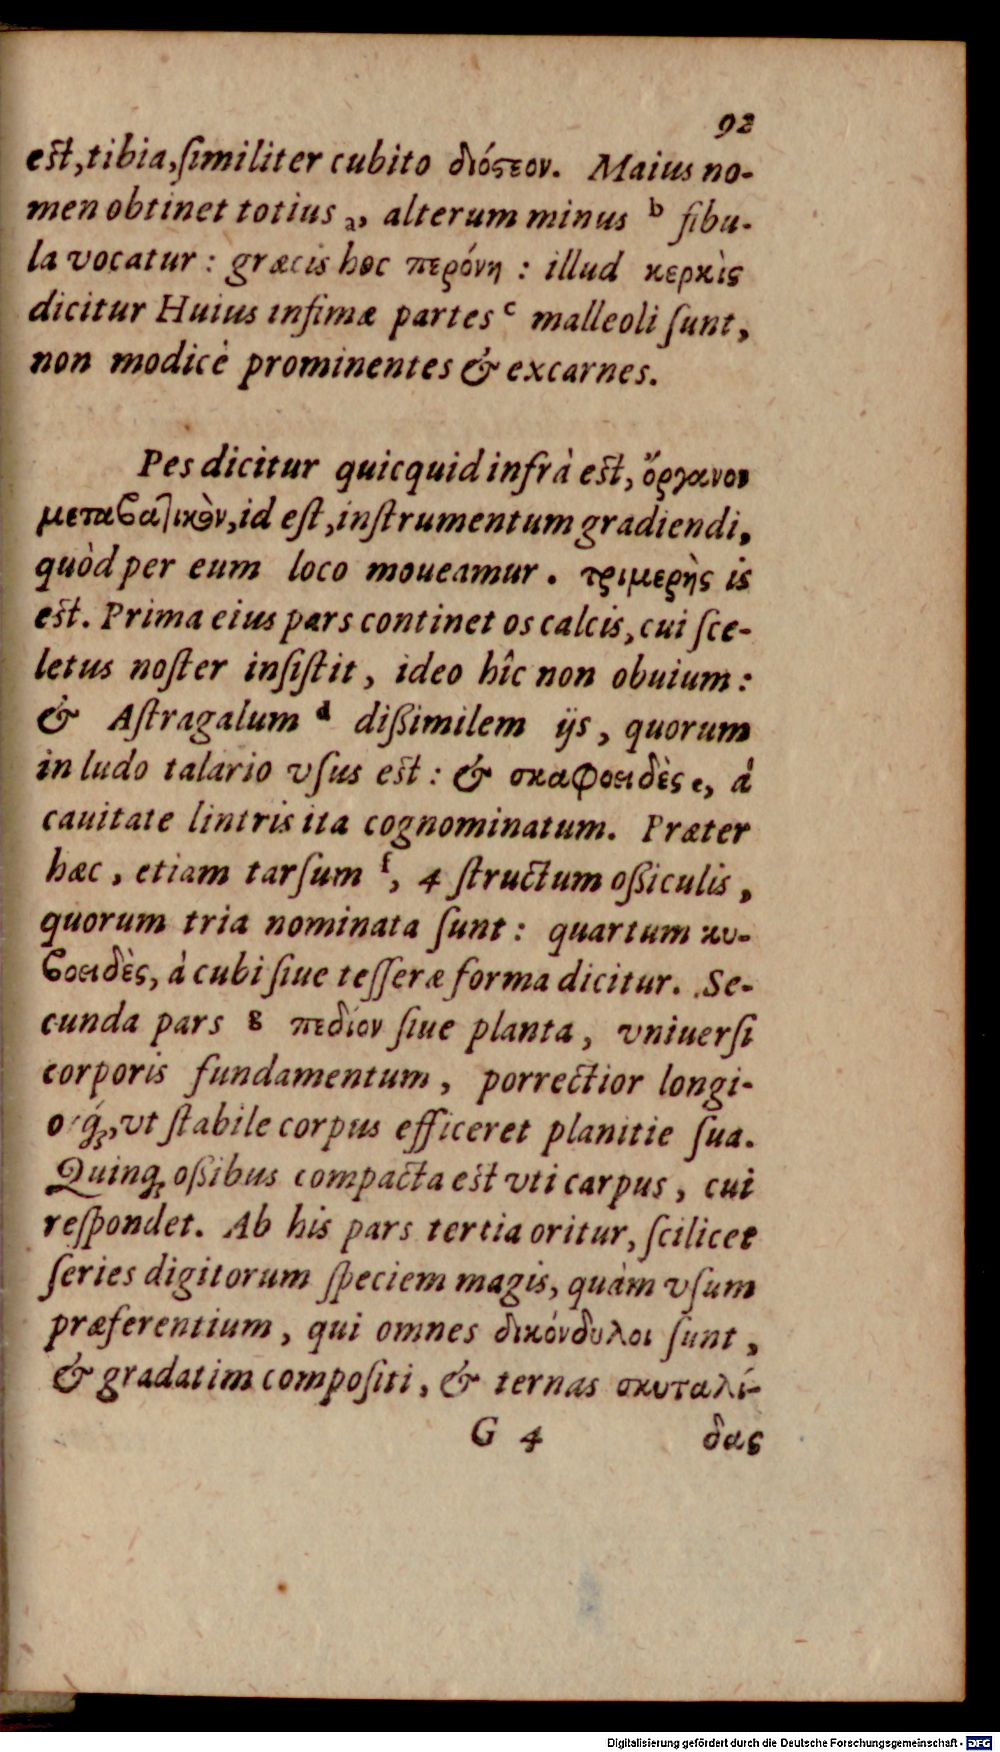 92
est, tibia, ſimiliter cubito διόϛεον. Maius no-
men obtinet totius a, alterum minus b fibu-
la vocatur: græcis hoc περόνη: illud κερκὶς
dicitur Huius infimæ partes c malleoli ſunt,
non modicè prominentes & excarnes.
Pes dicitur quicquid infrà est, ὄργανον
μεταϐατικὸν, id eſt, inſtrumentum gradiendi,
quòd per eum loco moueamur. τριμερὴς is
est. Prima eius pars continet os calcis, cui ſce-
letus noſter inſiſtit, ideo hîc non obuium:
& Aſtragalum d dißimilem ijs, quorum
in ludo talario vſus est: & σκαφοειδὲς e, à
cauitate lintris ita cognominatum. Præter
hæc, etiam tarſum f, 4 ſtructum oßiculis,
quorum tria nominata ſunt: quartum κυ-
ϐοειδὲς, à cubi ſiue teſſeræ forma dicitur. Se-
cunda pars g πεδίον ſiue planta, vniuerſi
corporis fundamentum, porrectior longi-
orq́;, vt ſtabile corpus efficeret planitie ſua.
Quinq; oßibus compacta est vti carpus, cui
reſpondet. Ab his pars tertia oritur, ſcilicet
ſeries digitorum ſpeciem magis, quàm vſum
præferentium, qui omnes δικόνδυλοι ſunt,
& gradatim compoſiti, & ternas σκυταλί-
G 4 δας
Digitalisierung gefördert durch die Deutsche Forschungsgemeinschaft - DFG